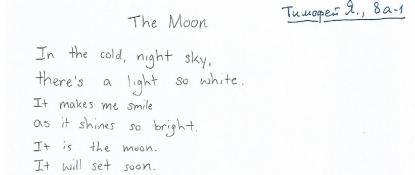 The Moon
Тимофей Я., 8а-1
In the cold, night sky,
there's a light so white.
It makes me smile
as it shines so bright.
It is the moon.
It will set soon.